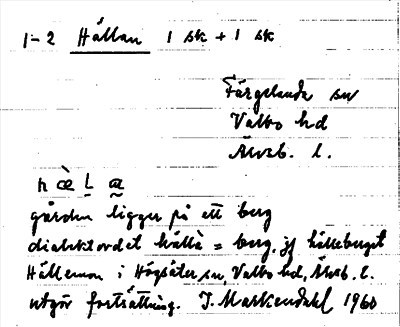 1-2 Hällan 1 sk + 1 sk
Färgelanda sn
Valbo hd
Älvsb. l.
h æ̀ L æ
gården ligger på ett berg
dialektordet hälla = berg, jf hälleberget
Hällemon i Högsäter sn, Valbo hd, Älvsb. l.
utgör fortsättning. J. Markendahl 1960